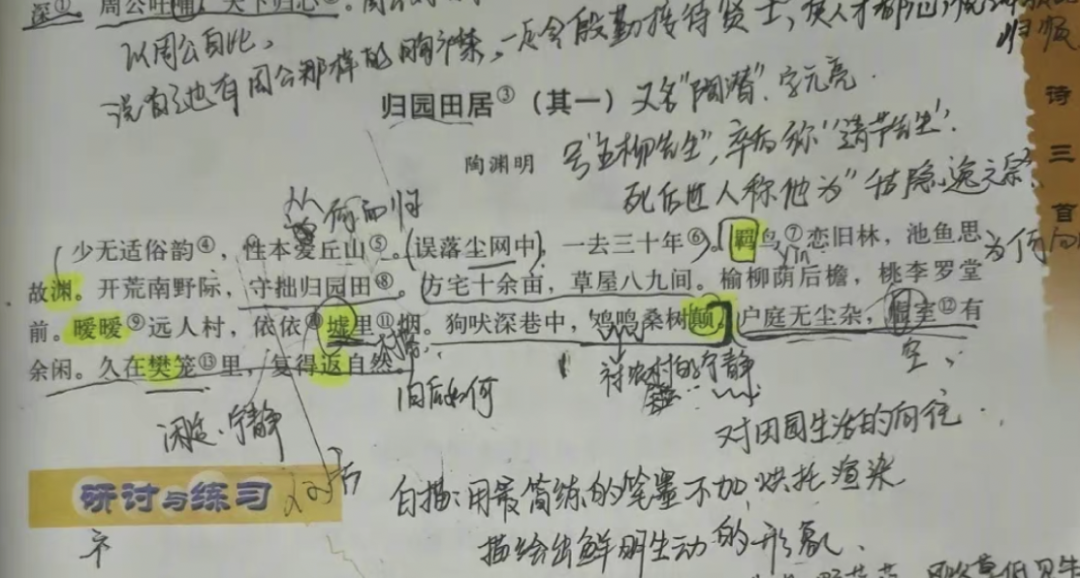 深①。周公吐哺，天下归心
以周公自比。
说自己也有周公那样的胸襟，一定会殷勤接待贤士，
归顺
归园田居③（其一）又名"陶潜"，字元亮．
陶渊明 号"五柳先生"，卒后称"靖节先生"．
死后世人称他为"隐逸之宗
诗三首
从何而归
为何归
少无适俗韵④，性本爱丘山⑤。误落尘网中，一去三十年⑥。羁鸟⑦恋旧林，池鱼思
故渊。开荒南野际，守拙归园田⑧。方宅十余亩，草屋八九间。榆柳荫后檐，桃李罗堂
前。暧暧⑨远人村，依依⑩墟里⑪烟。狗吠深巷中，鸡鸣桑树颠。户庭无尘杂，虚室⑫有
余闲。久在樊笼⑬里，复得返自然。
空，
衬农村的宁静
归后如何
闲适．宁静
对田园生活的向往．
研讨与练习
白描：用最简练的笔墨不加烘托渲染
描绘出鲜明生动的形象．